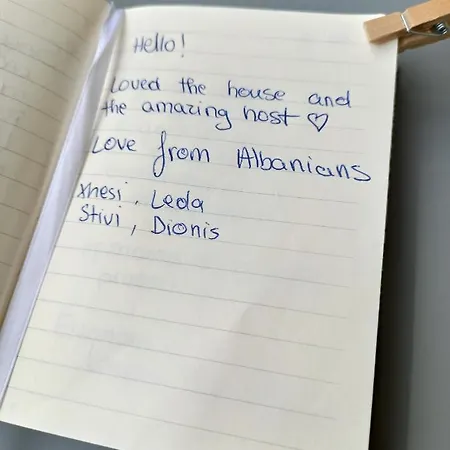 Hello!
Loved the house and
the amazing host ♡
Love from Albanians
Xhesi, Leda
Stivi, Dionis